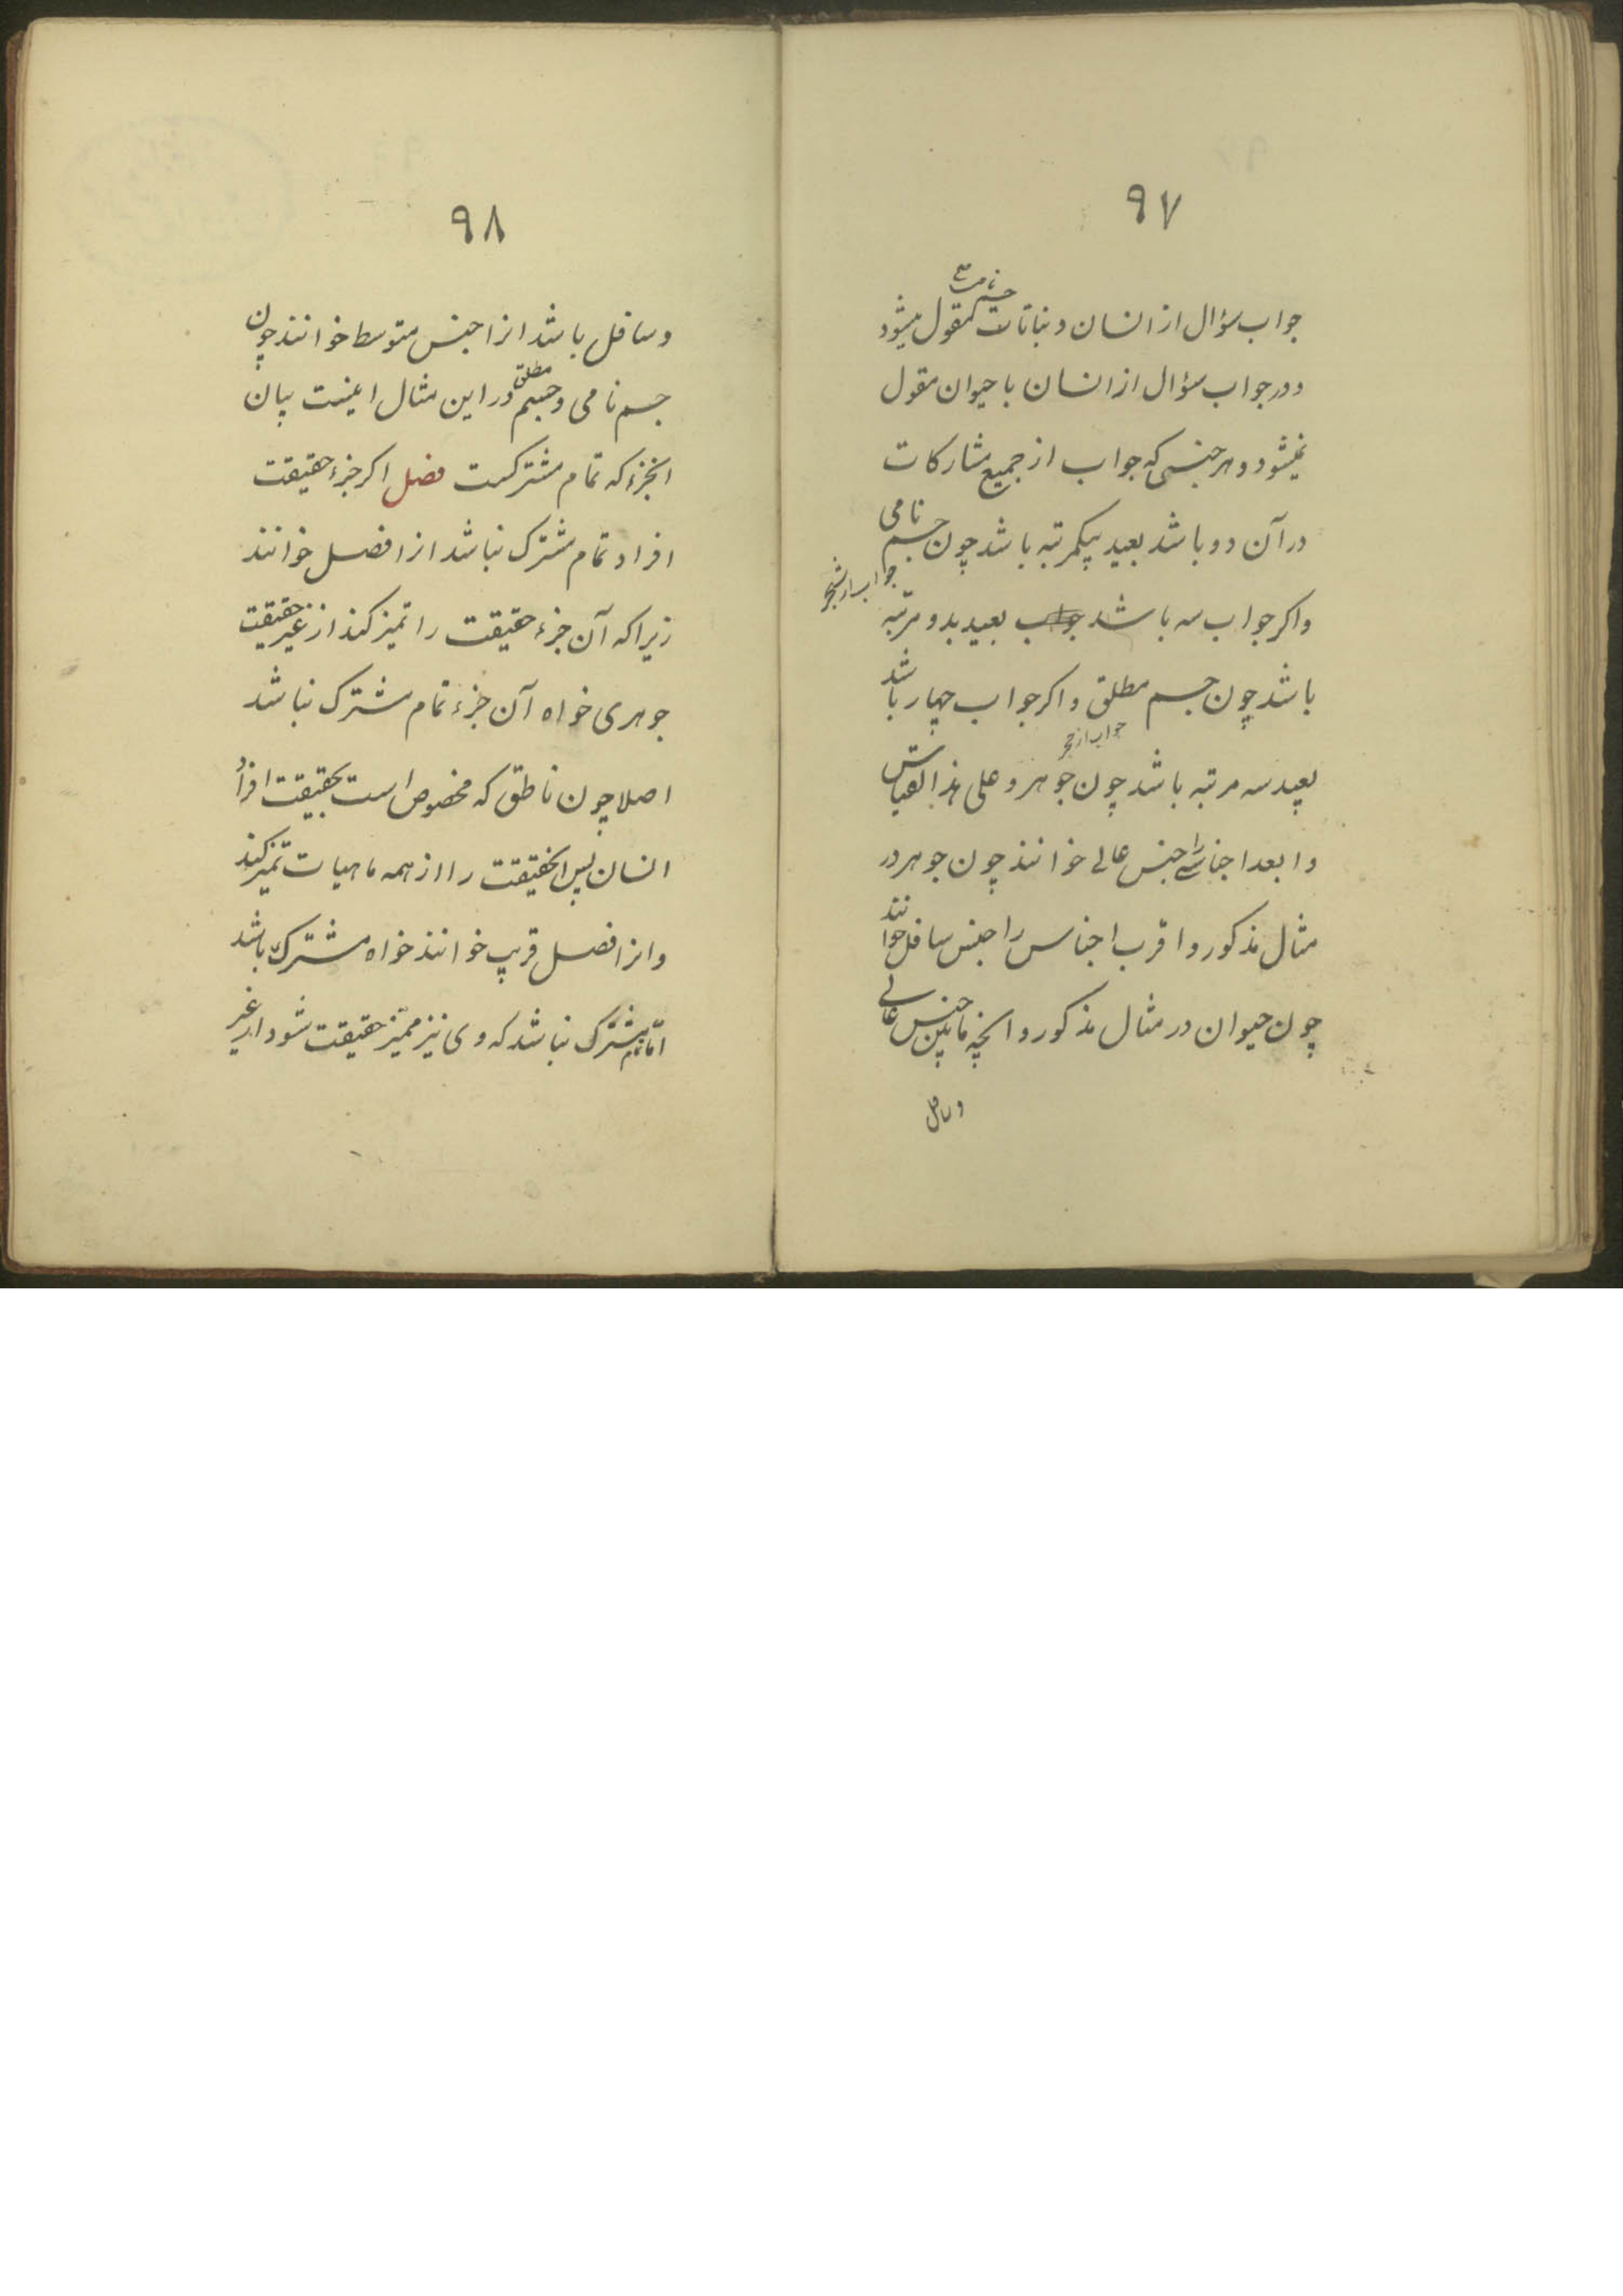 ۹۷
جواب سؤال از انسان و نباتات جسم نامی مقول میشود
و در جواب سؤال از انسان با حیوان مقول
نمیشود و هر جنسی که جواب از جمیع مشارکات
در آن دو باشد بعید بیکمرتبه باشد چون جسم نامی
واکر جواب سه باشد جواب بعید بدو مرتبه
جواب از شجر
باشد چون جسم مطلق و اکر جواب چهار باشد
جواب از حجر
بعید سه مرتبه باشد چون جوهر و علی هذا القیاس
و ابعد اجناس را جنس عالی خوانند چون جوهر در
مثال مذکور و اقرب اجناس را جنس سافل خوانند
چون حیوان در مثال مذکور و انچه مابین جنس عالی
و سافل
۹۸
و سافل باشد انرا جنس متوسط خوانند چون
جسم نامی و جسم مطلق در این مثال اینست بیان
انجزء که تمام مشترکست فصل اکر جزء حقیقت
افراد تمام مشترک نباشد انرا فصل خوانند
زیرا که آن جزء حقیقت را تمیز کند از غیر حقیقت
جوهری خواه آن جزء تمام مشترک نباشد
اصلا چون ناطق که مخصوص است بحقیقت افراد
انسان پس انحقیقت را از همه ماهیات تمیز کند
و انرا فصل قریب خوانند خواه مشترک باشد
امّا تمام مشترک نباشد که وی نیز ممیّز حقیقت شود از غیر